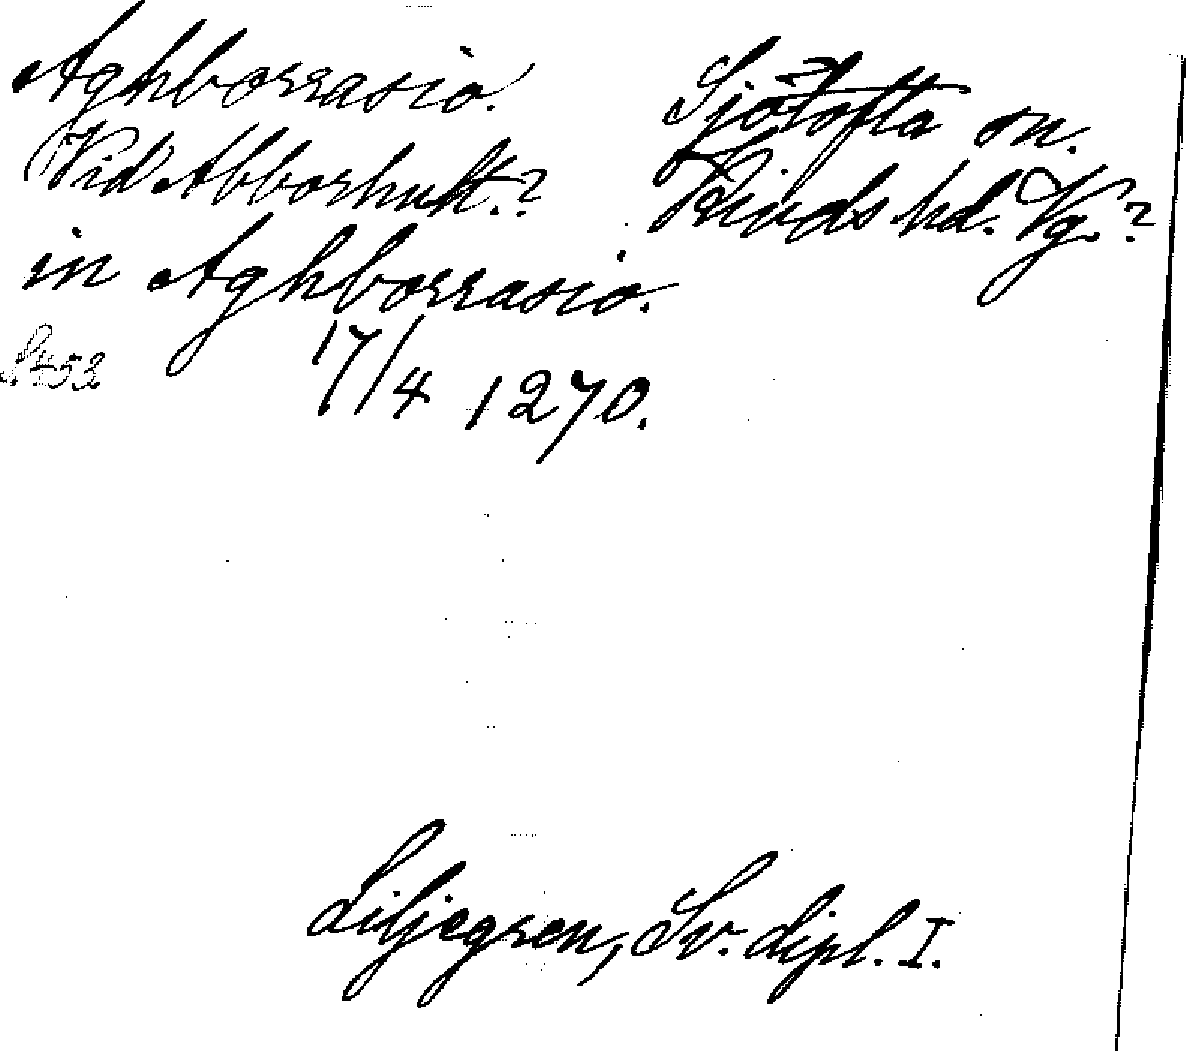 Aghborrasio. Sjötofta sn.
Vid Abborhult.? Kinds hd. Vg.?
in Aghborrasio.
S. 453 17/4 1270.
Liljegren, Sv. dipl. I.